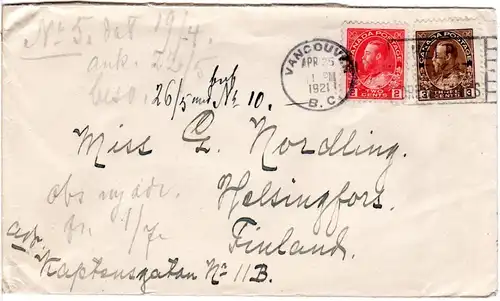 No 5. dat 19/4.
ank. 22/5
besv. 26/5 med No 10.
CANADA POSTAGE
2 TWO CENTS 2
CANADA POSTAGE
3 THREE CENTS 3
VANCOUVER
APR 25
PM
1921
B.C.
Miss G. Nordling.
Helsingfors.
Finland.
obs ny adr.
fr. 1/7.
adr. Kaptensgatan No 11B.